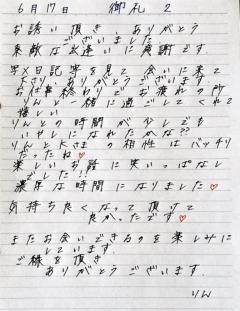 6月17日 御礼 2
お誘い頂き、ありがとう
ございました
素敵な出逢いに感謝です。
写メ日記等を見て 会いに来て
くださり ありがとうございます
お仕事終わりで お疲れの所
りんと一緒に過ごしてくれて
嬉しい
りんとの時間が少しでも
いやしになれたかな??
りんとKさまの相性はバッチリ
だったね♡
楽しいお話に笑いっぱなし
でした!!
濃厚な時間になりました♡
気持ち良くなって頂けて
良かったです♡
またお会いできるのを楽しみに
しています。
ご縁を頂き
ありがとうございます。
りん